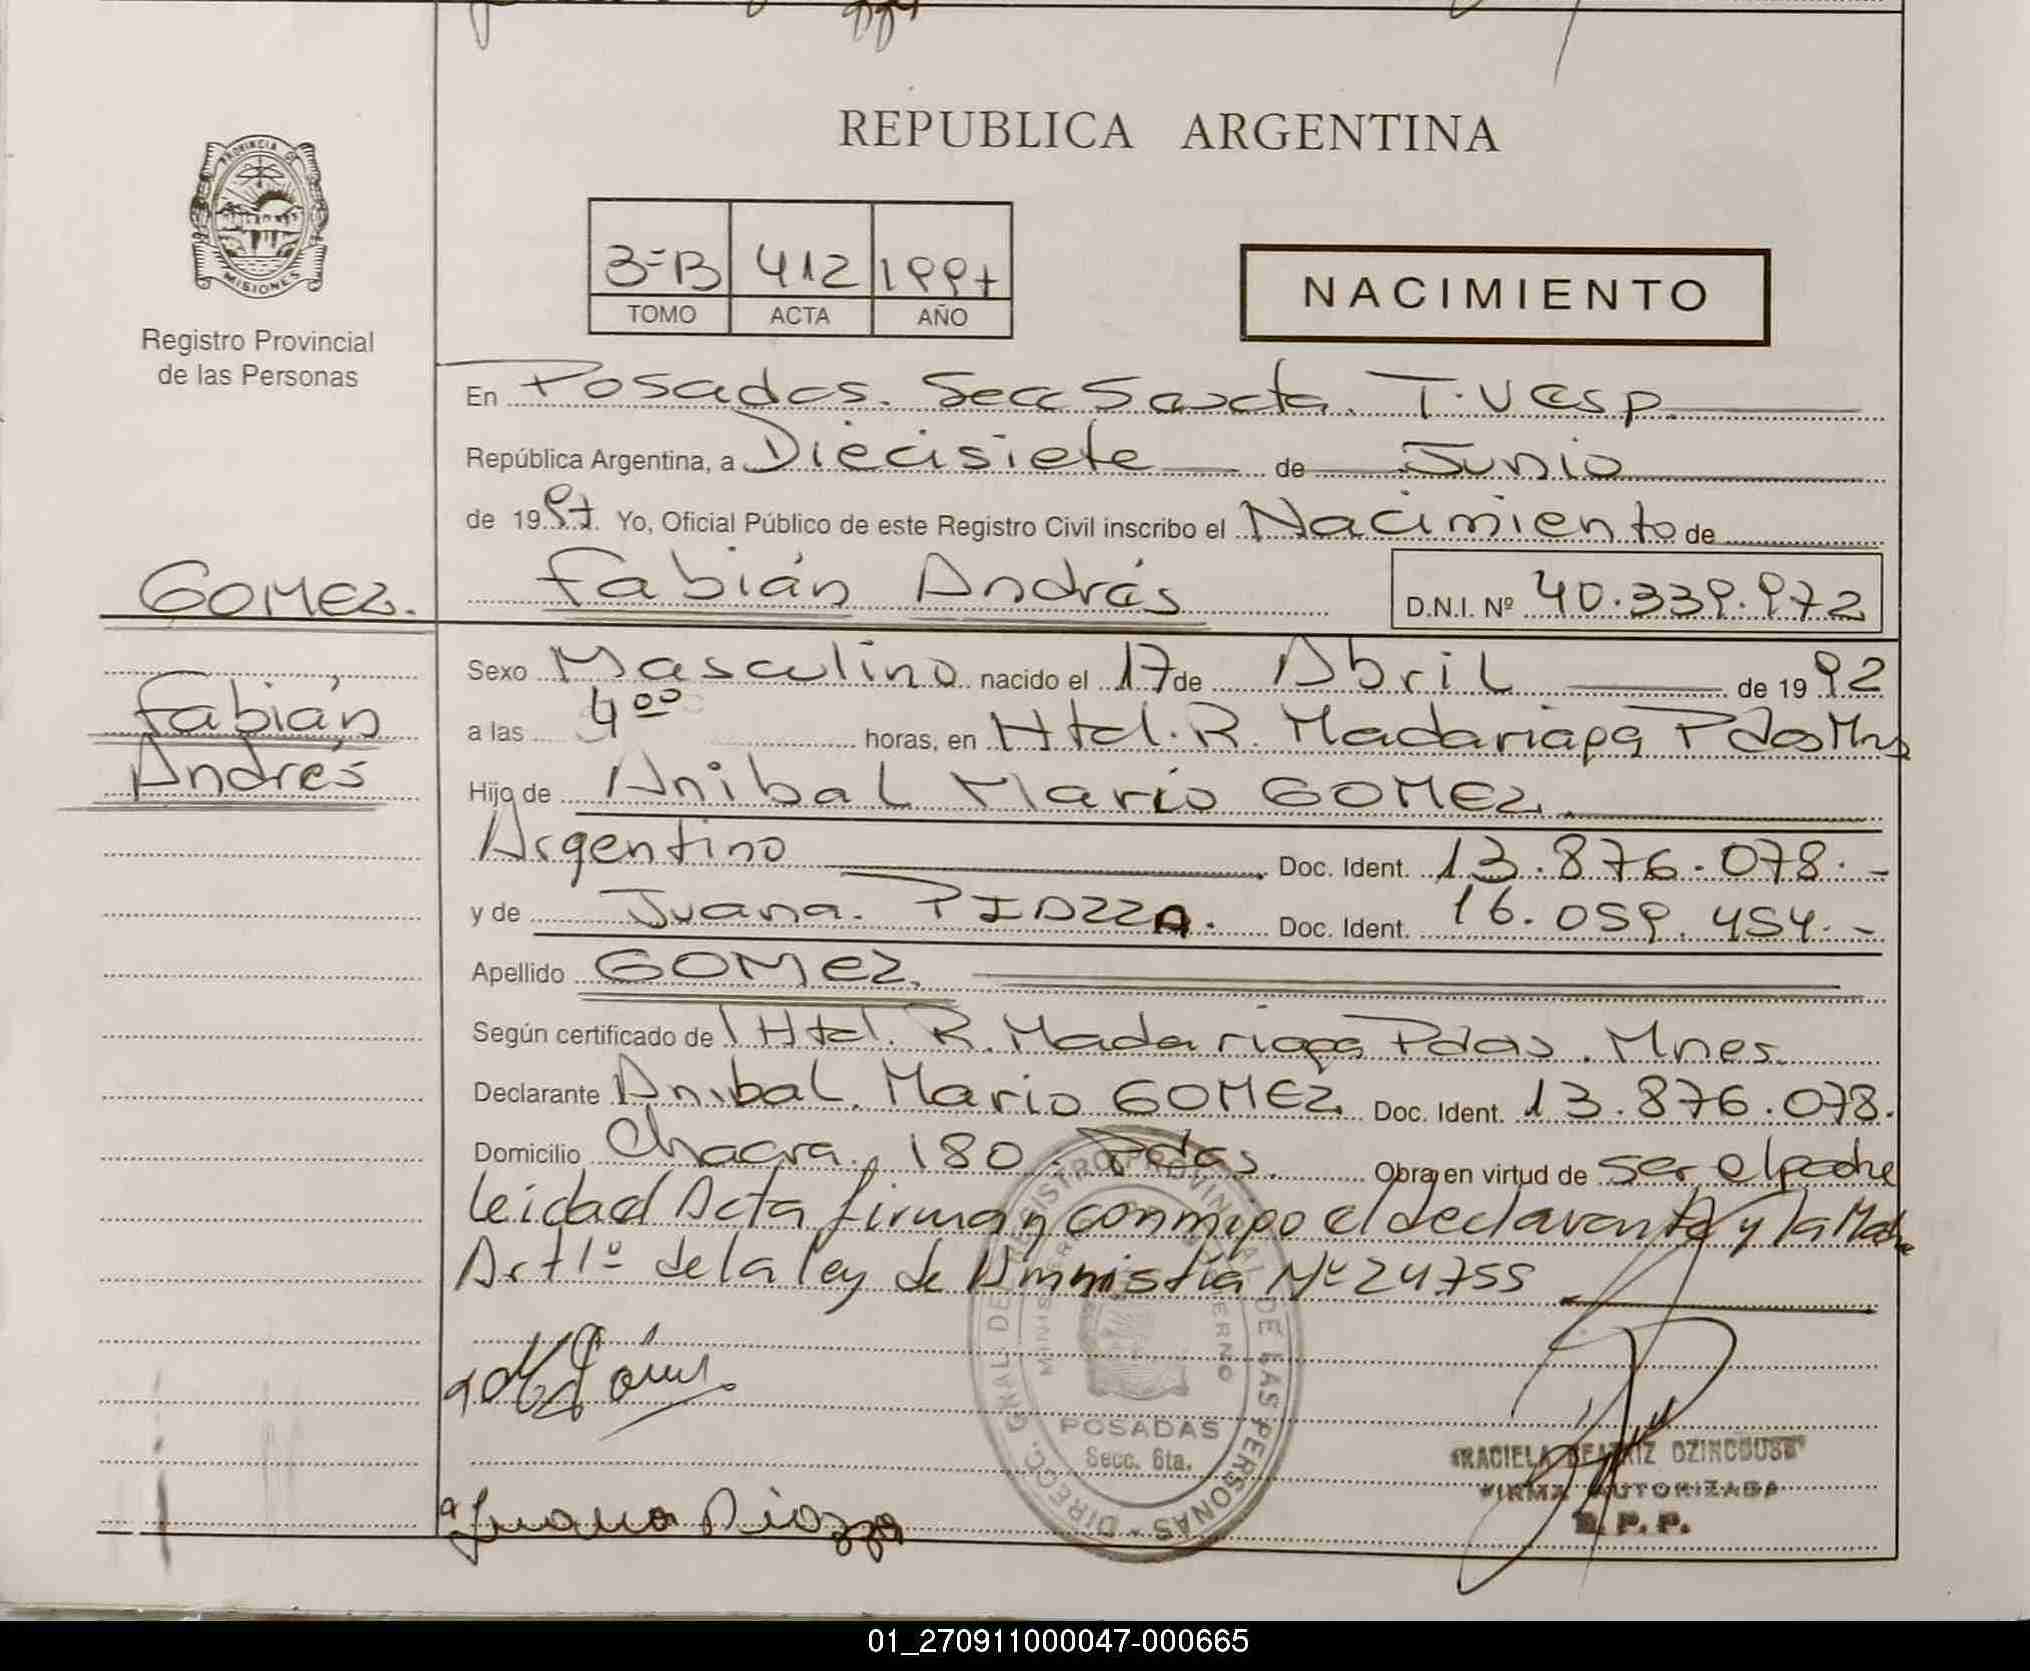 REPUBLICA ARGENTINA
PROVINCIA DE
MISIONES
Registro Provincial
de las Personas
3=B 412 1997
TOMO ACTA AÑO
NACIMIENTO
En Posadas. Secc Sexta. T. Vesp.
República Argentina, a Diecisiete de Junio
de 1997. Yo, Oficial Público de este Registro Civil inscribo el Nacimiento de
GOMEZ. Fabián Andrés D.N.I. Nº 40.339.972
Fabián
Andrés
Sexo Masculino nacido el 17 de Abril de 1992
a las 4ºº horas, en Htal. R. Madariaga Pdas Mns
Hijo de Anibal Mario GOMEZ.
Argentino Doc. Ident. 13.876.078.-
y de Juana. PIOZZA. Doc. Ident. 16.059.454.-
Apellido GOMEZ.
Según certificado de l Htal. R. Madariaga Pdas. Mnes.
Declarante Anibal. Mario GOMEZ Doc. Ident. 13.876.078.
Domicilio Chacra. 180. Pdas. Obra en virtud de ser el padre
leidad Acta firman conmigo el declarante y la Madre
Art 1º de la ley de Amnistia Nº 24755
DIRECC. GRAL. DEL REGISTRO PROVINCIAL DE LAS PERSONAS
POSADAS
Secc. 6ta.
GRACIELA BEATRIZ DZINCOUSE
FIRMA AUTORIZADA
R. P. P.
Juana Piozza
01_270911000047-000665